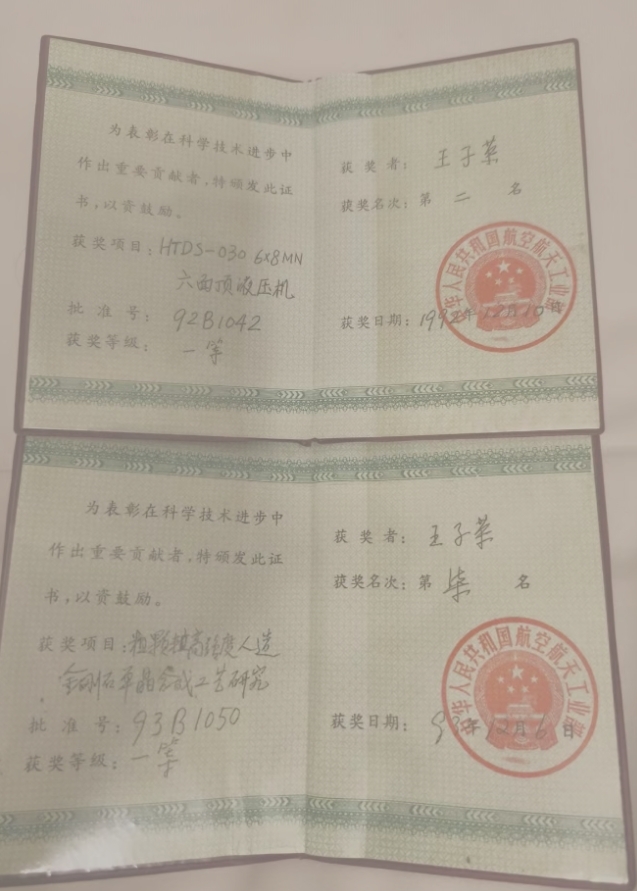 为表彰在科学技术进步中
作出重要贡献者，特颁发此证
书，以资鼓励。
获奖项目：HTDS-030 6x8MN
六面顶液压机
批准号：92B1042
获奖等级：一等
获奖者：王子荣
获奖名次：第二名
中华人民共和国航空航天工业部
获奖日期：1992年12月10
为表彰在科学技术进步中
作出重要贡献者，特颁发此证
书，以资鼓励。
获奖项目：粗颗粒高强度人造
金刚石单晶合成工艺研究
批准号：93B1050
获奖等级：一等
获奖者：王子荣
获奖名次：第柒名
中华人民共和国航空航天工业部
获奖日期：93年12月6日